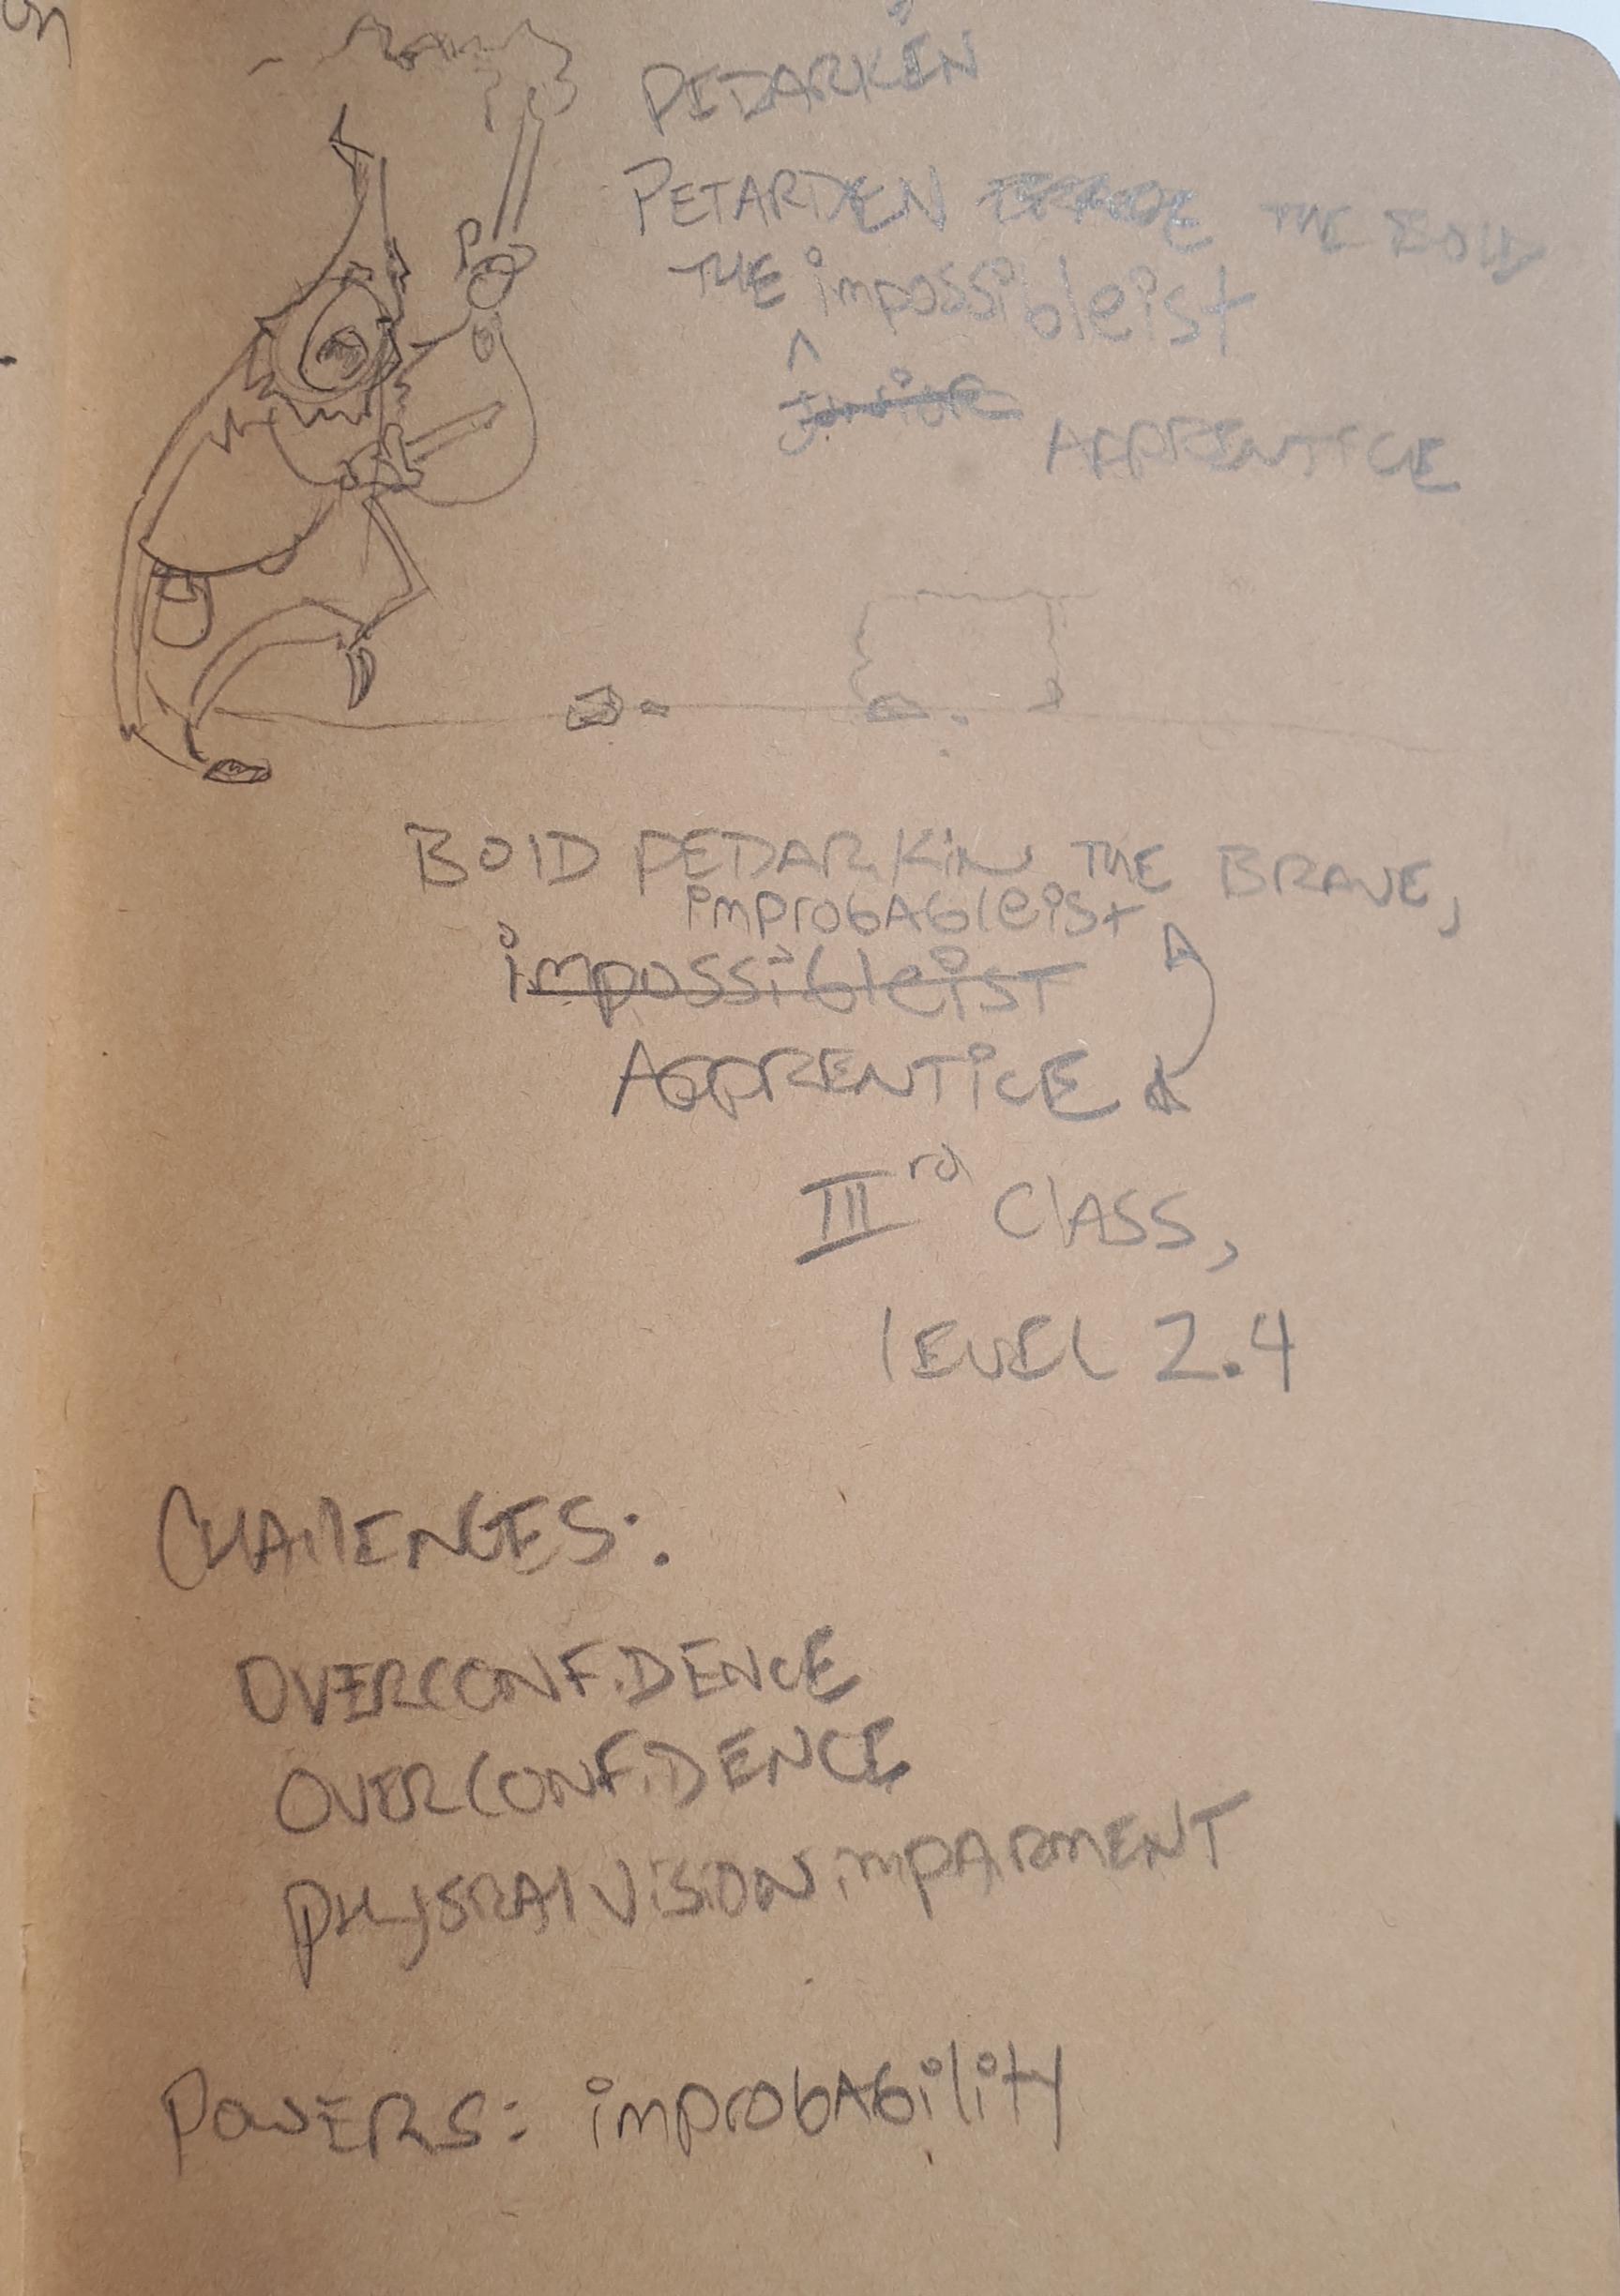 on
PEDARKEN
PETARDEN THE BOLD
THE impossibleist
^
Junior
APPRENTICE
BOLD PEDARKiN THE BRAVE,
improbableist
impossibleist
APPRENTiCE
IIIrd CLASS,
LEVEL 2.4
CHALLENGES:
OVERCONFiDENCE
OVERCONFiDENCE
PHYSRAL ViSiON imPARMENT
POWERS: improbability